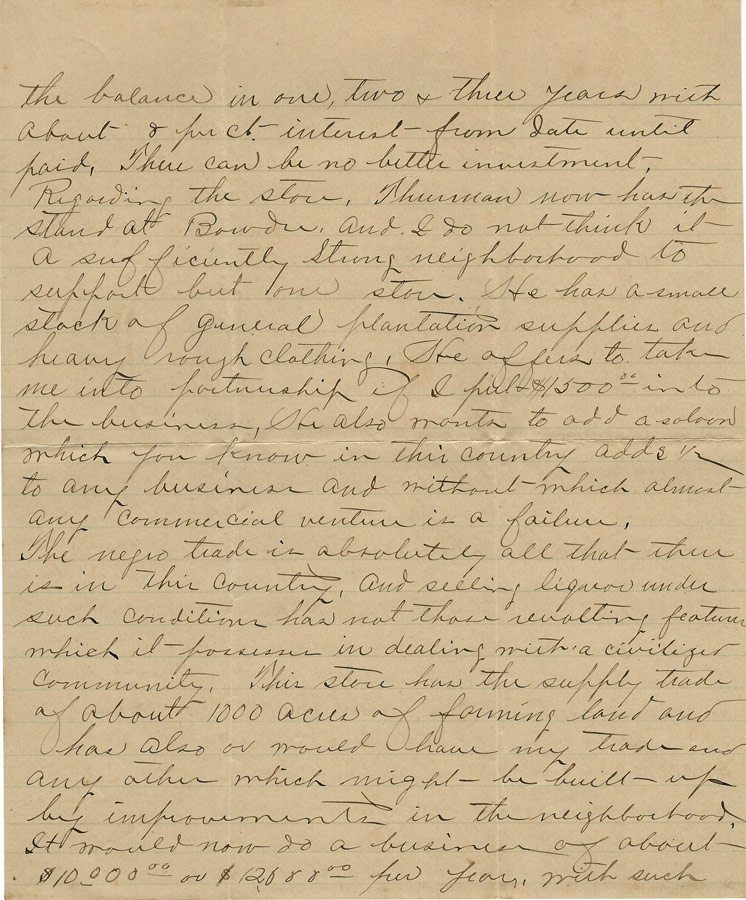 the balance in one, two & three years with
about 8 per ct. interest from date until
paid, There can be no better investment.
Regarding the store, Thurman now has the
stand at Bowdre. And. I do not think it
a sufficiently strong neighborhood to
support but one store. He has a small
stock of general plantation supplies and
heavy rough clothing, He offers to take
me into partnership if I put $1500 00 into
the business, He also wants to add a saloon
which you know in this country adds 1/2
to any business and without which almost
any commercial venture is a failure.
The negro trade is absolutely all that there
is in this country, and selling liquor under
such conditions has not those revolting features
which it possesses in dealing with a civilized
community. This store has the supply trade
of about 1000 acres of farming land and
has also or would have my trade and
any other which might be built up
by improvements in the neighborhood.
It would now do a business of about
$10.000 00 or $ 00 per year, with such